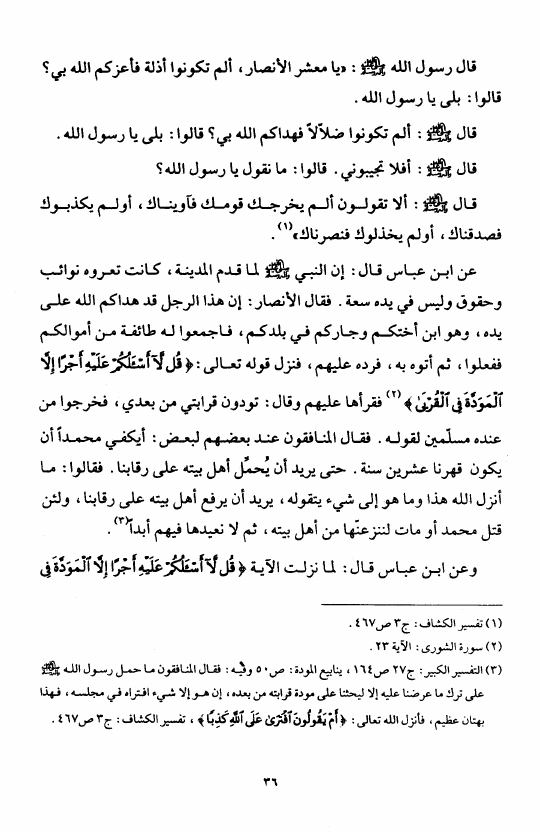 قال رسول الله ﷺ : «يا معشر الأنصار، ألم تكونوا أذلة فأعزكم الله بي؟
قالوا: بلى يا رسول الله.
قال ﷺ : ألم تكونوا ضلاّلاً فهداكم الله بي؟ قالوا: بلى يا رسول الله.
قال ﷺ : أفلا تجيبوني. قالوا: ما نقول يا رسول الله؟
قال ﷺ : ألا تقولون ألم يخرجك قومك فآويناك، أولم يكذبوك
فصدقناك، أولم يخذلوك فنصرناك»(١).
عن ابن عباس قال: إن النبي ﷺ لما قدم المدينة، كانت تعروه نوائب
وحقوق وليس في يده سعة. فقال الأنصار: إن هذا الرجل قد هداكم الله على
يده، وهو ابن أختكم وجاركم في بلدكم، فاجمعوا له طائفة من أموالكم
ففعلوا، ثم أتوه به، فرده عليهم، فنزل قوله تعالى: ﴿قُل لَّآ أَسْـَٔلُكُمْ عَلَيْهِ أَجْرًا إِلَّا
ٱلْمَوَدَّةَ فِى ٱلْقُرْبَىٰ﴾(٢) فقرأها عليهم وقال: تودون قرابتي من بعدي، فخرجوا من
عنده مسلّمين لقوله. فقال المنافقون عند بعضهم لبعض: أيكفي محمداً أن
يكون قهرنا عشرين سنة. حتى يريد أن يُحمِّل أهل بيته على رقابنا. فقالوا: ما
أنزل الله هذا وما هو إلى شيء يتقوله، يريد أن يرفع أهل بيته على رقابنا، ولئن
قتل محمد أو مات لننزعنّها من أهل بيته، ثم لا نعيدها فيهم أبداً(٣).
وعن ابن عباس قال: لما نزلت الآية ﴿قُل لَّآ أَسْـَٔلُكُمْ عَلَيْهِ أَجْرًا إِلَّا ٱلْمَوَدَّةَ فِى
(١) تفسير الكشاف: ج٣ ص٤٦٧.
(٢) سورة الشورى: الآية ٢٣.
(٣) التفسير الكبير: ج٢٧ ص١٦٤، ينابيع المودة: ص٥٠ وفيه: فقال المنافقون ما حمل رسول الله ﷺ
على ترك ما عرضنا عليه إلا ليحثنا على مودة قرابته من بعده، إن هو إلا شيء افتراه في مجلسه، فهذا
بهتان عظيم، فأنزل الله تعالى: ﴿أَمْ يَقُولُونَ ٱفْتَرَىٰ عَلَى ٱللَّهِ كَذِبًا﴾، تفسير الكشاف: ج٣ ص٤٦٧.
٣٦